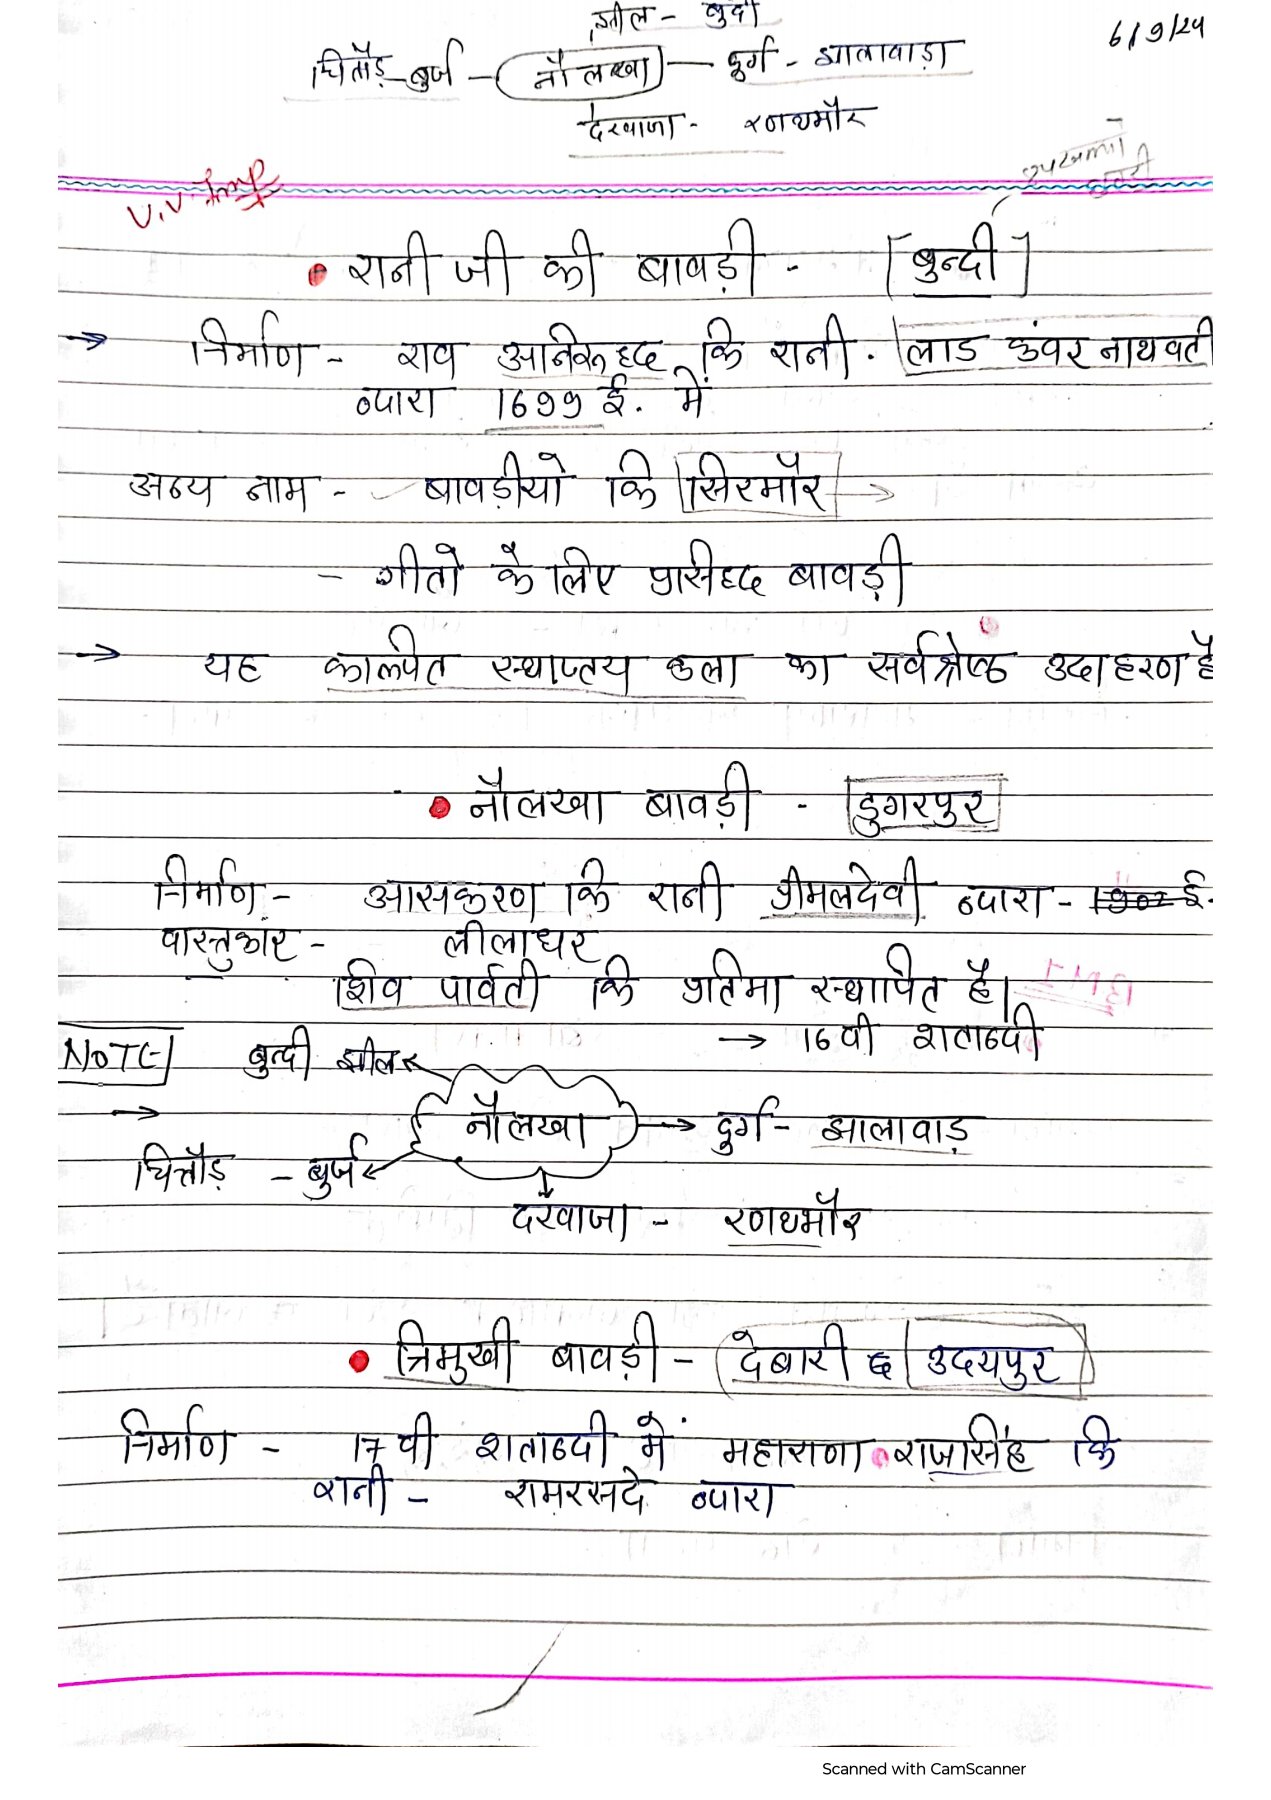 झील - बुंदी
6/9/24
चितौड़ - बुर्ज - नौलखा - दुर्ग - झालावाड़ा
दरवाजा - रणथमौर
V.V Imp
• रानी जी की बावड़ी - [बुन्दी]
→ निर्माण - राव अनिरूद्द कि रानी . लाड कंवर नाथवती
व्दारा 1699 ई. में
अन्य नाम - बावड़ीयो कि सिरमौर →
- गीतो के लिए प्रसीद्द बावड़ी
→ यह काल्पित स्थाप्तय कला का सर्वश्रेष्ठ उदाहरण है
• नौलखा बावड़ी - डुगरपुर
निर्माण - आसकरण कि रानी प्रीमलदेवी व्दारा - ई.
वास्तुकार - लीलाधर
शिव पार्वती कि प्रतिमा स्थापित है।
→ 16वी शताब्दी
NOTE बुन्दी झील
→ नौलखा → दुर्ग - झालावाड़
चित्तौड़ - बुर्ज
दरवाजा - रणथमौर
• त्रिमुखी बावड़ी - देबारी उदयपुर
निर्माण - 17 वी शताब्दी में महाराणा राजसिंह कि
रानी - रामरसदे व्दारा
Scanned with CamScanner